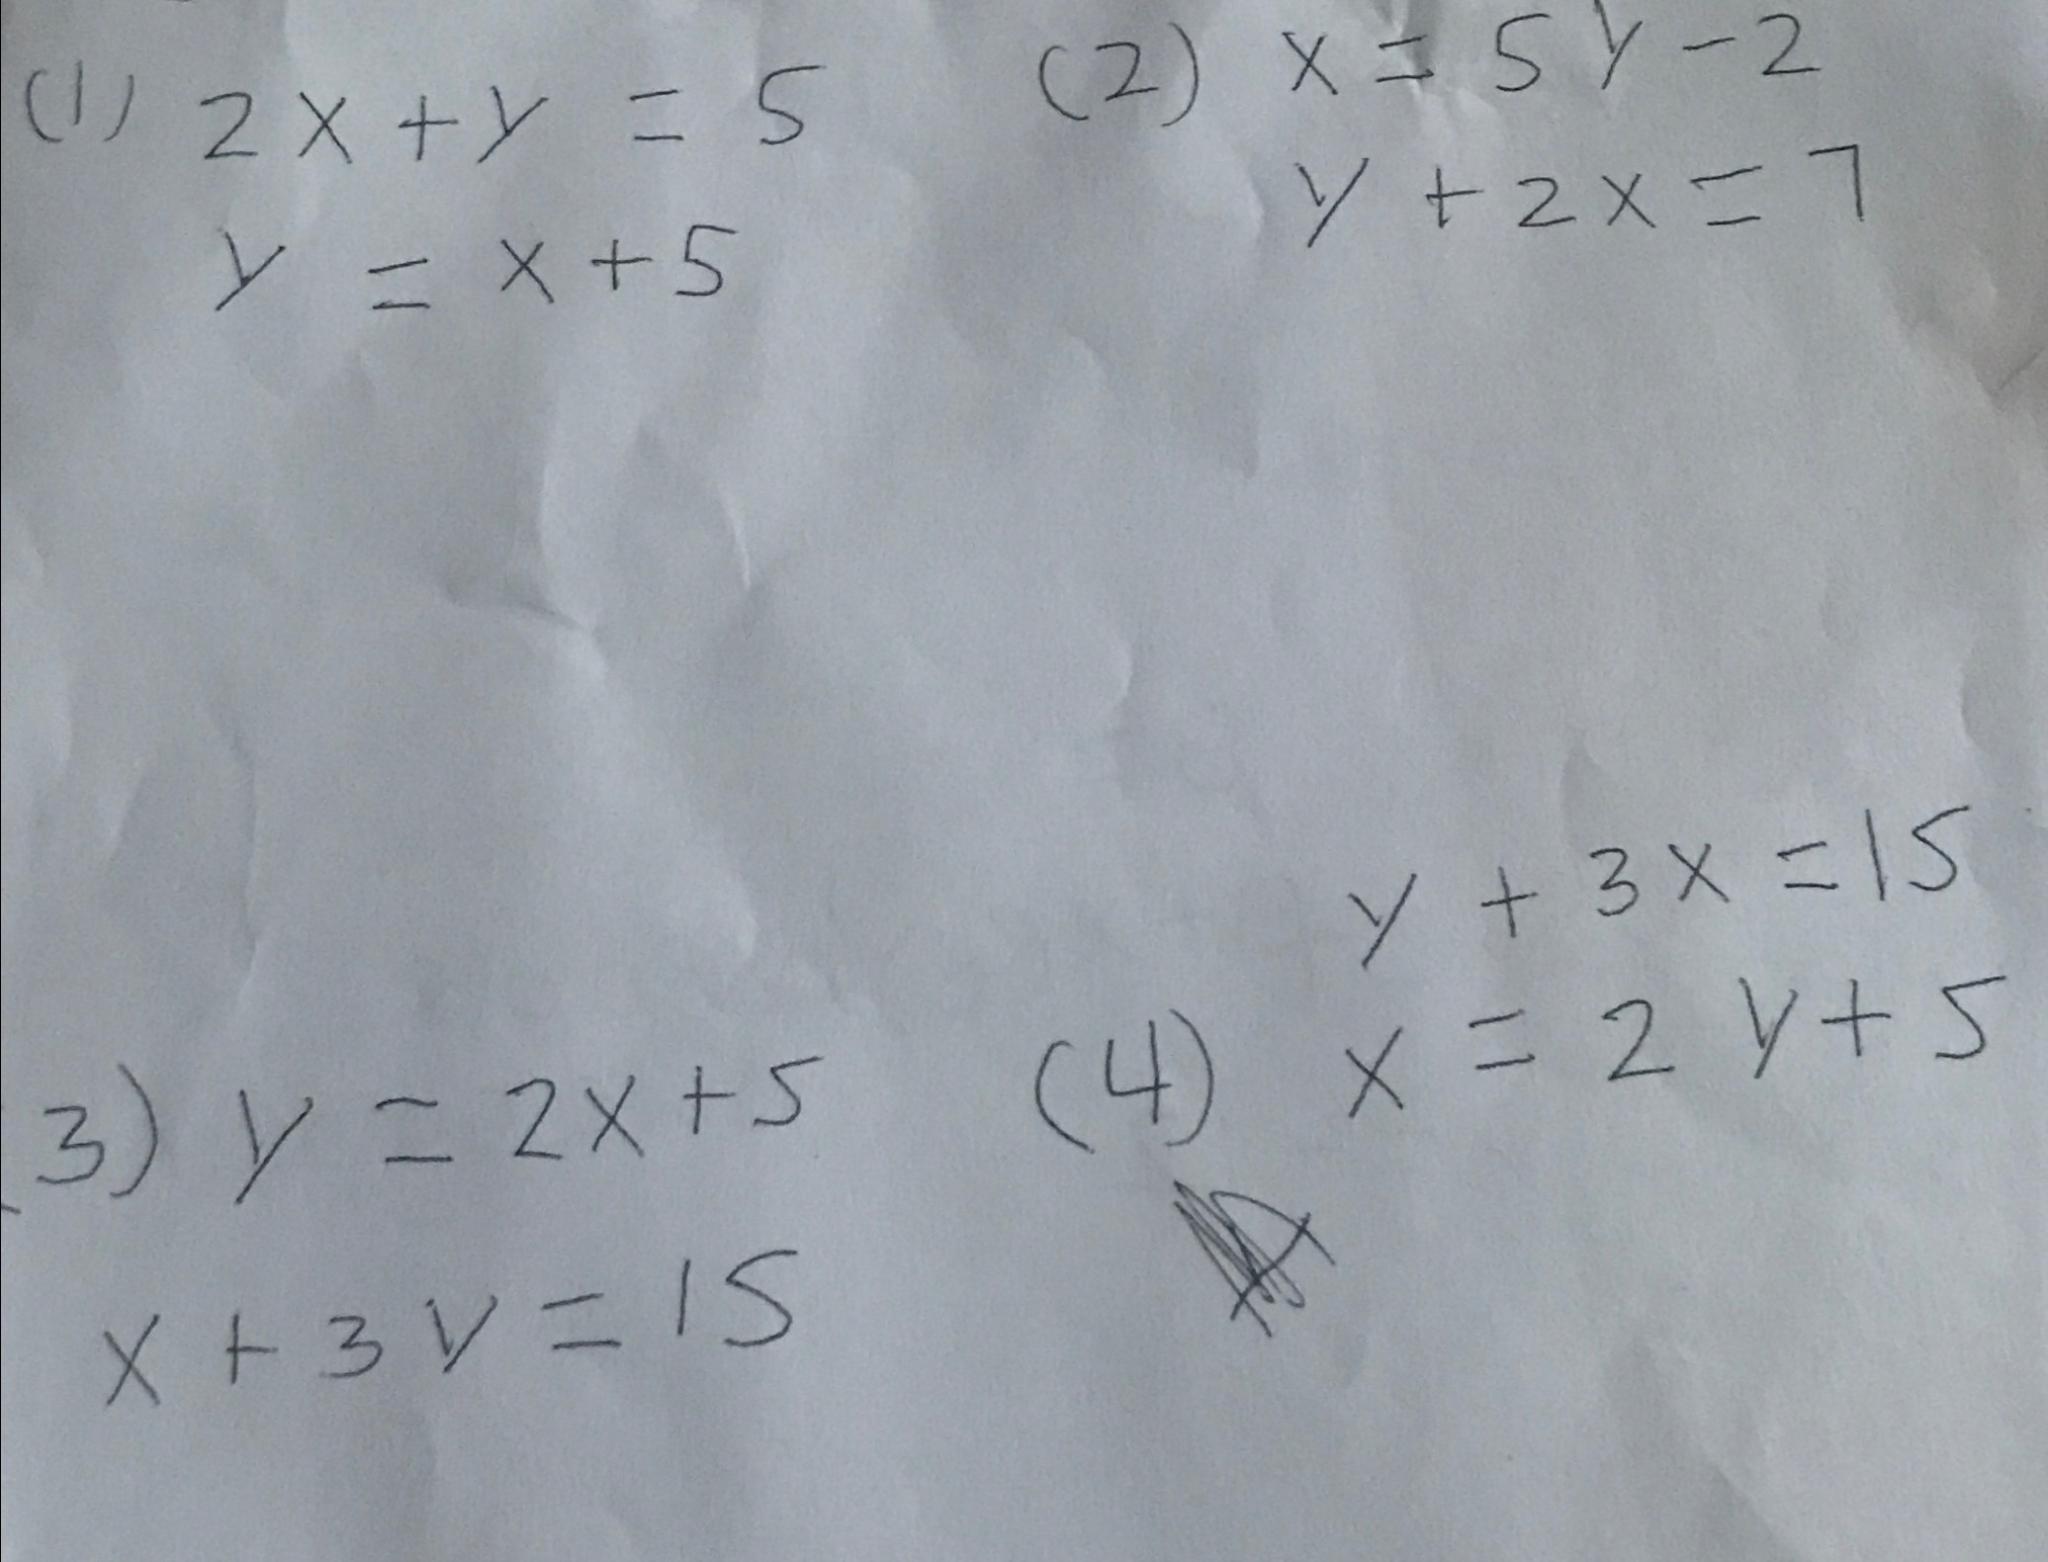 (1) 2x + y = 5
y = x + 5
(2) x = 5y - 2
y + 2x = 7
3) y = 2x + 5
x + 3y = 15
y + 3x = 15
(4) x = 2y + 5